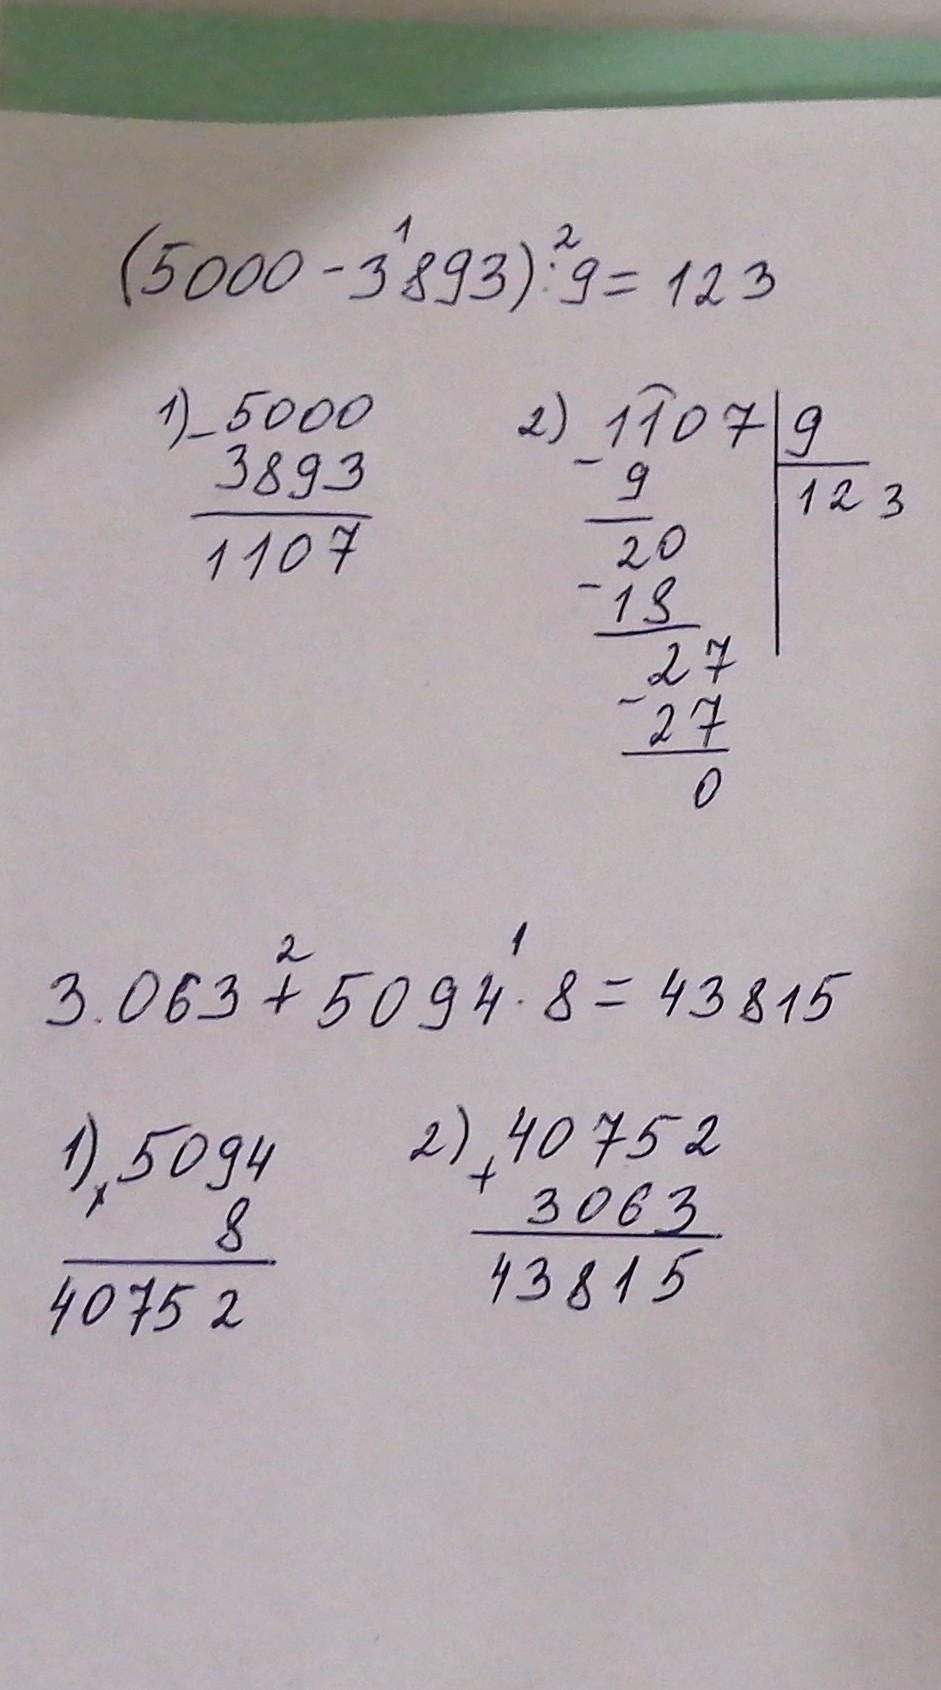 (5000 - 3893) : 9 = 123
1 2
1) - 5000
3893
1107
2) 1107 | 9
- 9
123
20
- 18
27
- 27
0
2 1
3.063 + 5094 · 8 = 43815
1) x 5094
8
40752
2) + 40752
3063
43815